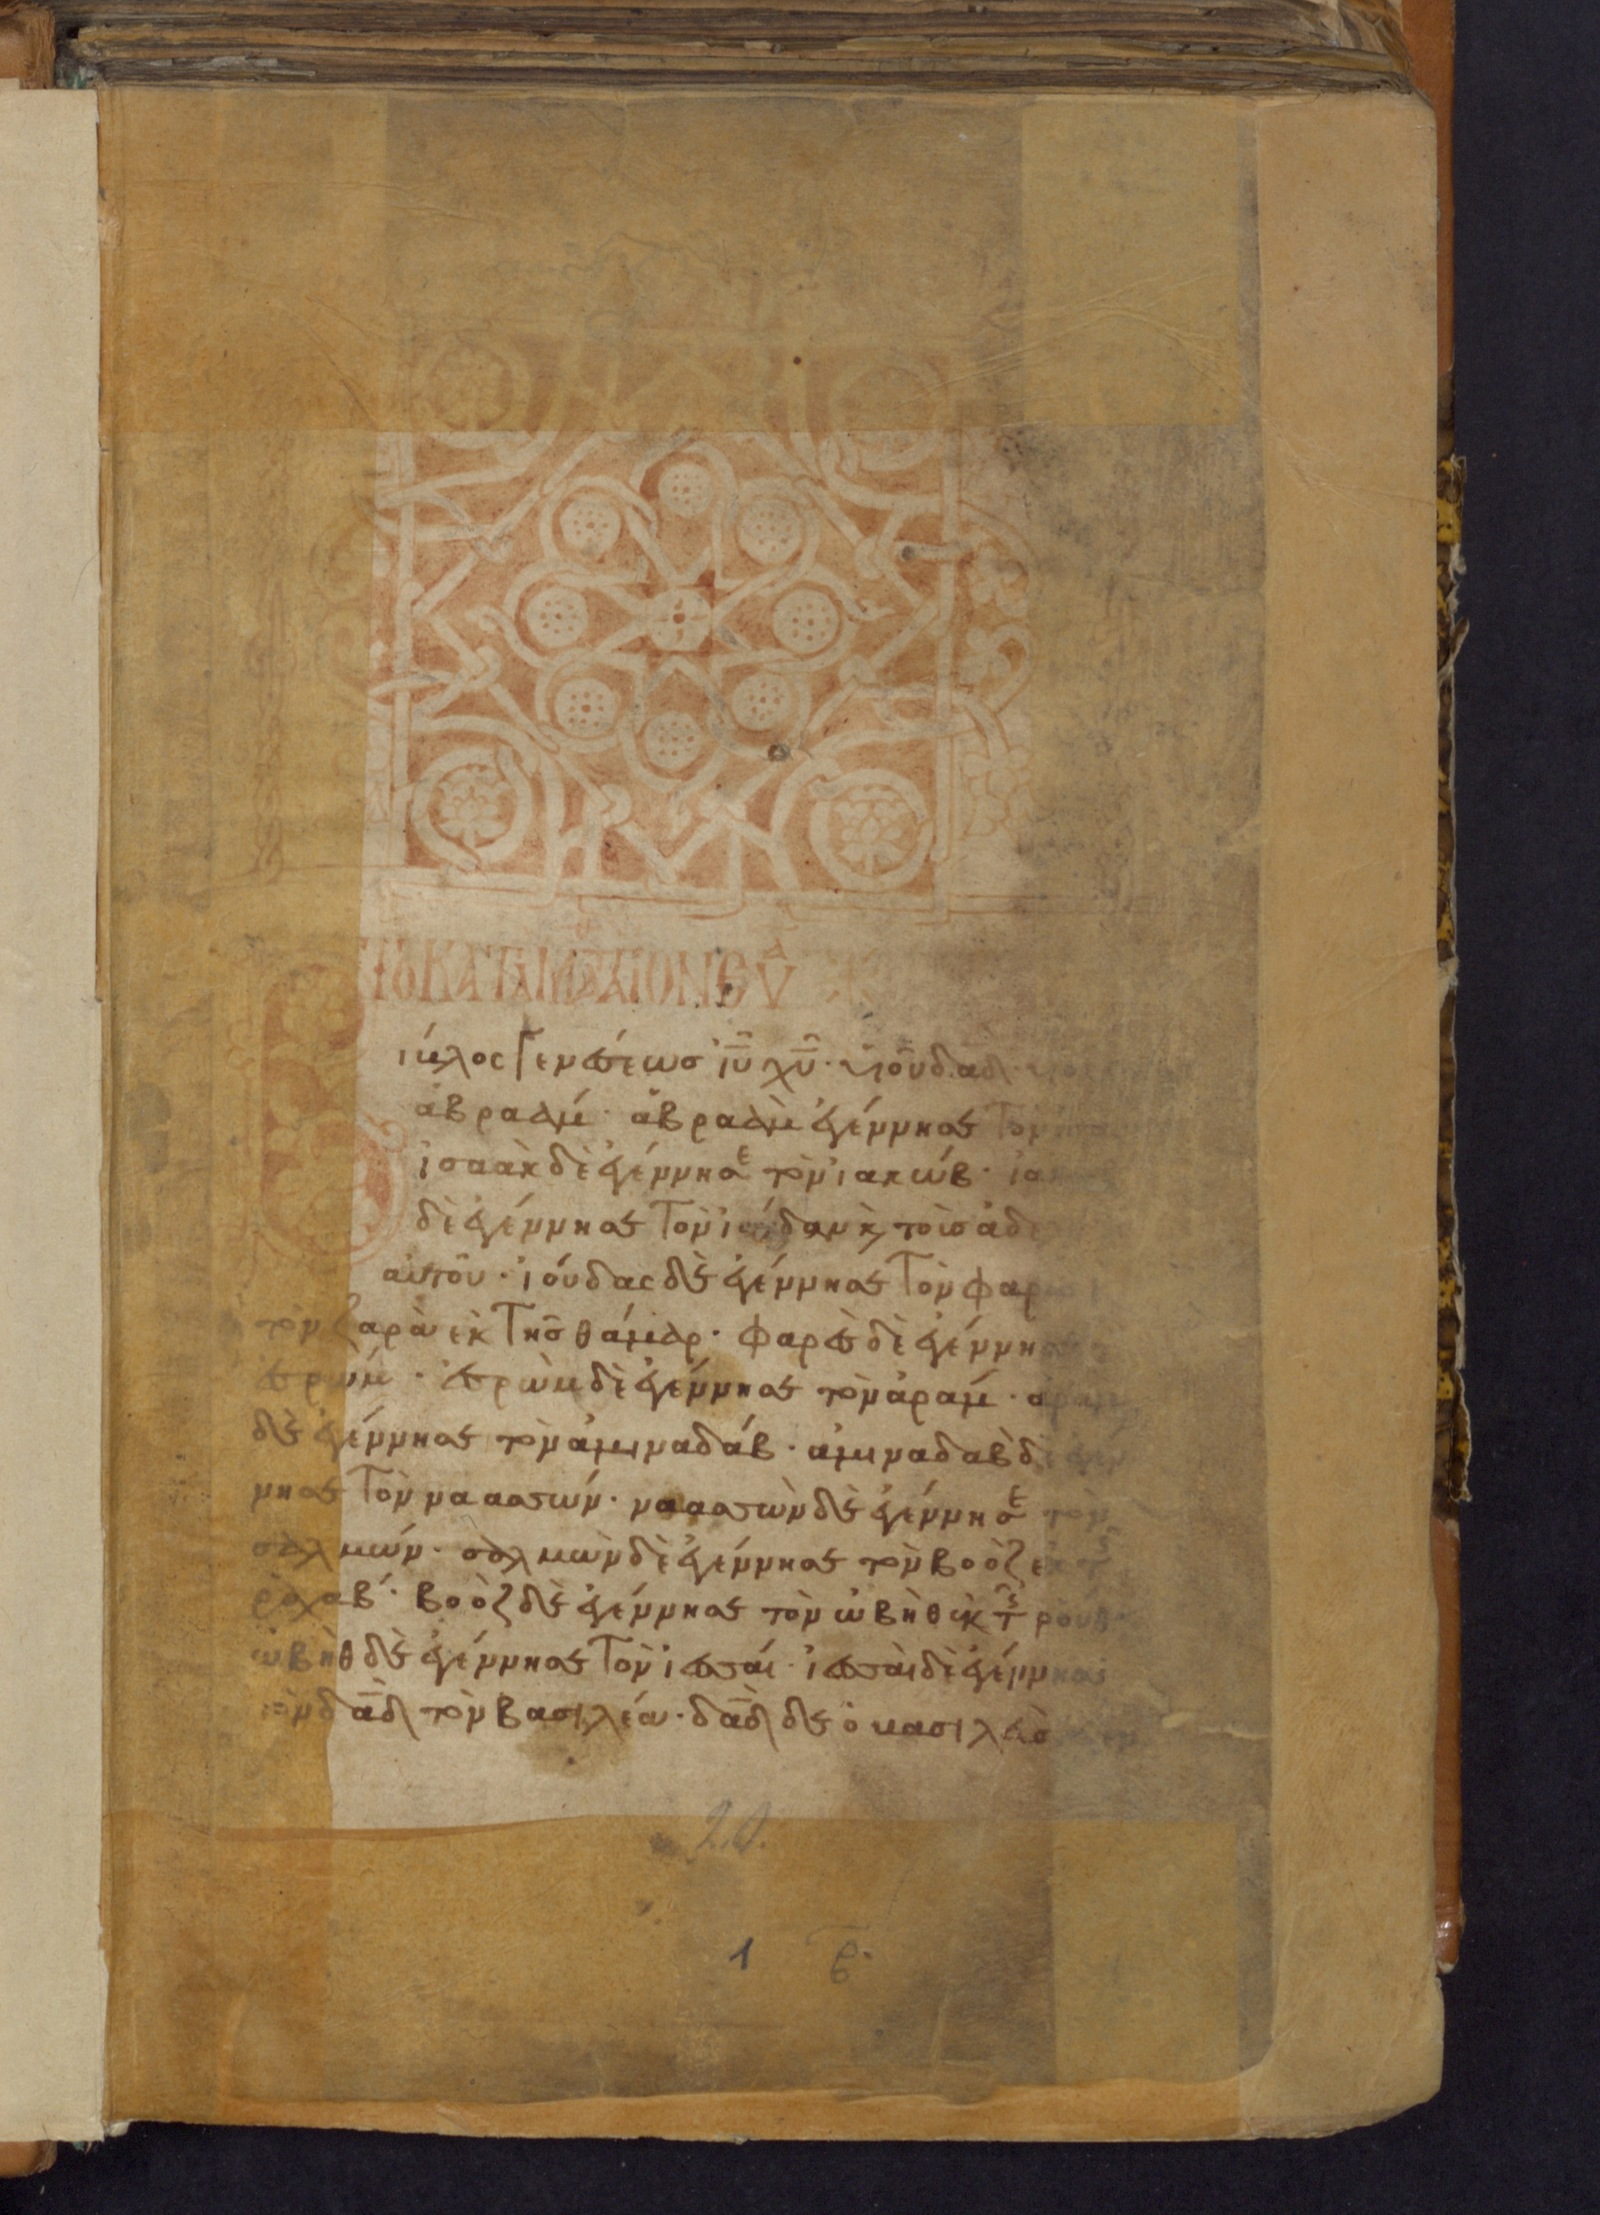 ΤΟ ΚΑΤΑ ΜΑΤΘΑΙΟΝ ΕΥ
ίβλος γενέσεως ἰῦ χῦ· υἱοῦ δαδ
ἀβραάμ· ἀβραὰμ ἐγέννησε τὸν
ἰσαὰκ δὲ ἐγέννησε τὸν ἰακώβ·
δὲ ἐγέννησε τὸν ἰούδαν κ τοὺς
αὐτοῦ· ἰούδας δὲ ἐγέννησε τὸν φαρὲς
τὸν ζαρὰ ἐκ τῆς θάμαρ· φαρὲς δὲ ἐγέννησε
ἐσρώμ· ἐσρὼμ δὲ ἐγέννησε τὸν ἀράμ· ἀρὰμ
δὲ ἐγέννησε τὸν ἀμιναδάβ· ἀμιναδὰβ δὲ ἐγέν
νησε τὸν ναασσών· ναασσὼν δὲ ἐγέννησε τὸν
σαλμών· σαλμὼν δὲ ἐγέννησε τὸν βοὸζ ἐκ τῆς
ῥαχάβ· βοὸζ δὲ ἐγέννησε τὸν ὠβὴθ ἐκ τῆς ῥούθ·
ὠβὴθ δὲ ἐγέννησε τὸν ἰεσσαί· ἰεσσαὶ δὲ ἐγέννησε
τὸν δαδ τὸν βασιλέα· δαδ δὲ ὁ βασιλεὺς
1